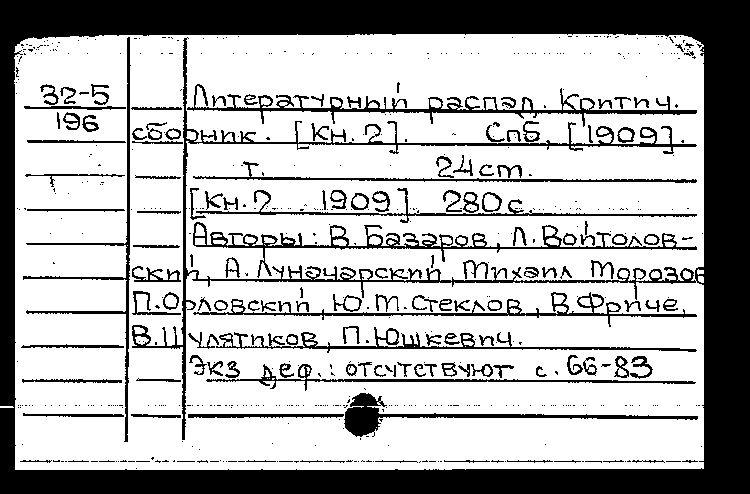 32-5 Литературный распад. Критич.
196 сборник. [Кн. 2]. Спб, [1909].
т. 24 см.
[Кн. 2 1909] 280 с.
Авторы: В. Базаров, Л. Войтолов-
ский, А. Луначарский, Михаил Морозов
П. Орловский, Ю. М. Стеклов, В. Фриче,
В. Шулятиков, П. Юшкевич.
Экз деф.: отсутствуют с. 66-83